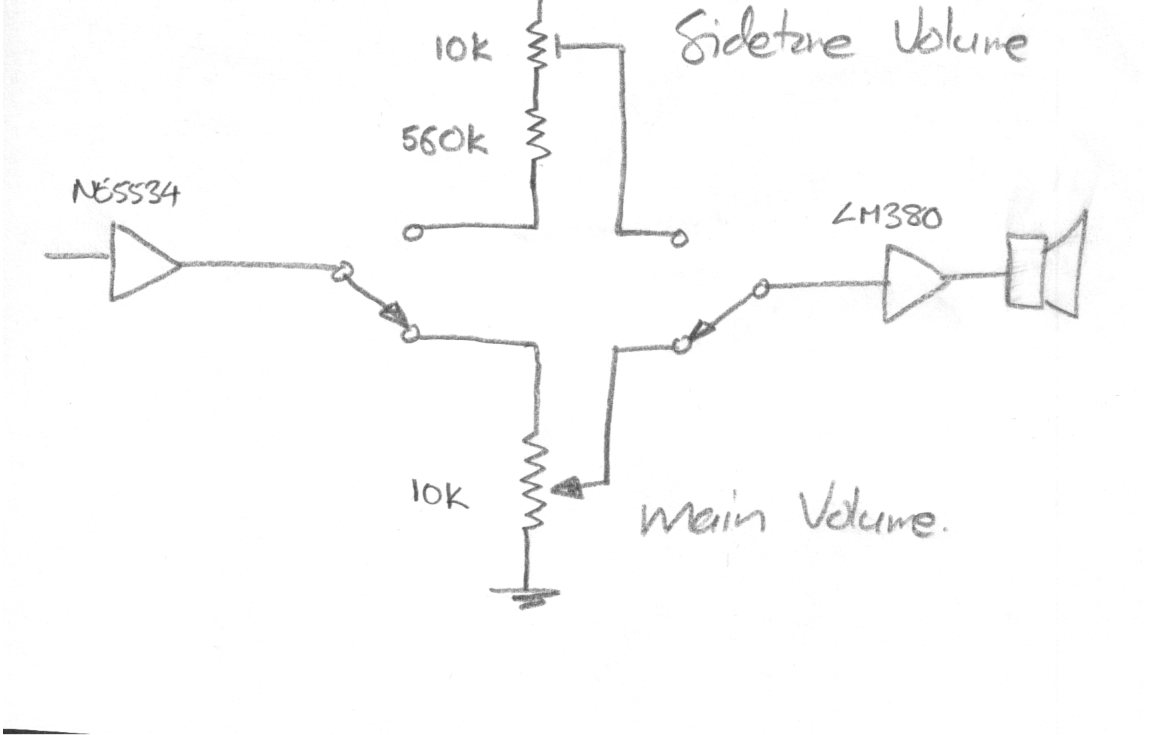 10k
Sidetone Volume
560k
NE5534
LM380
10k
Main Volume.